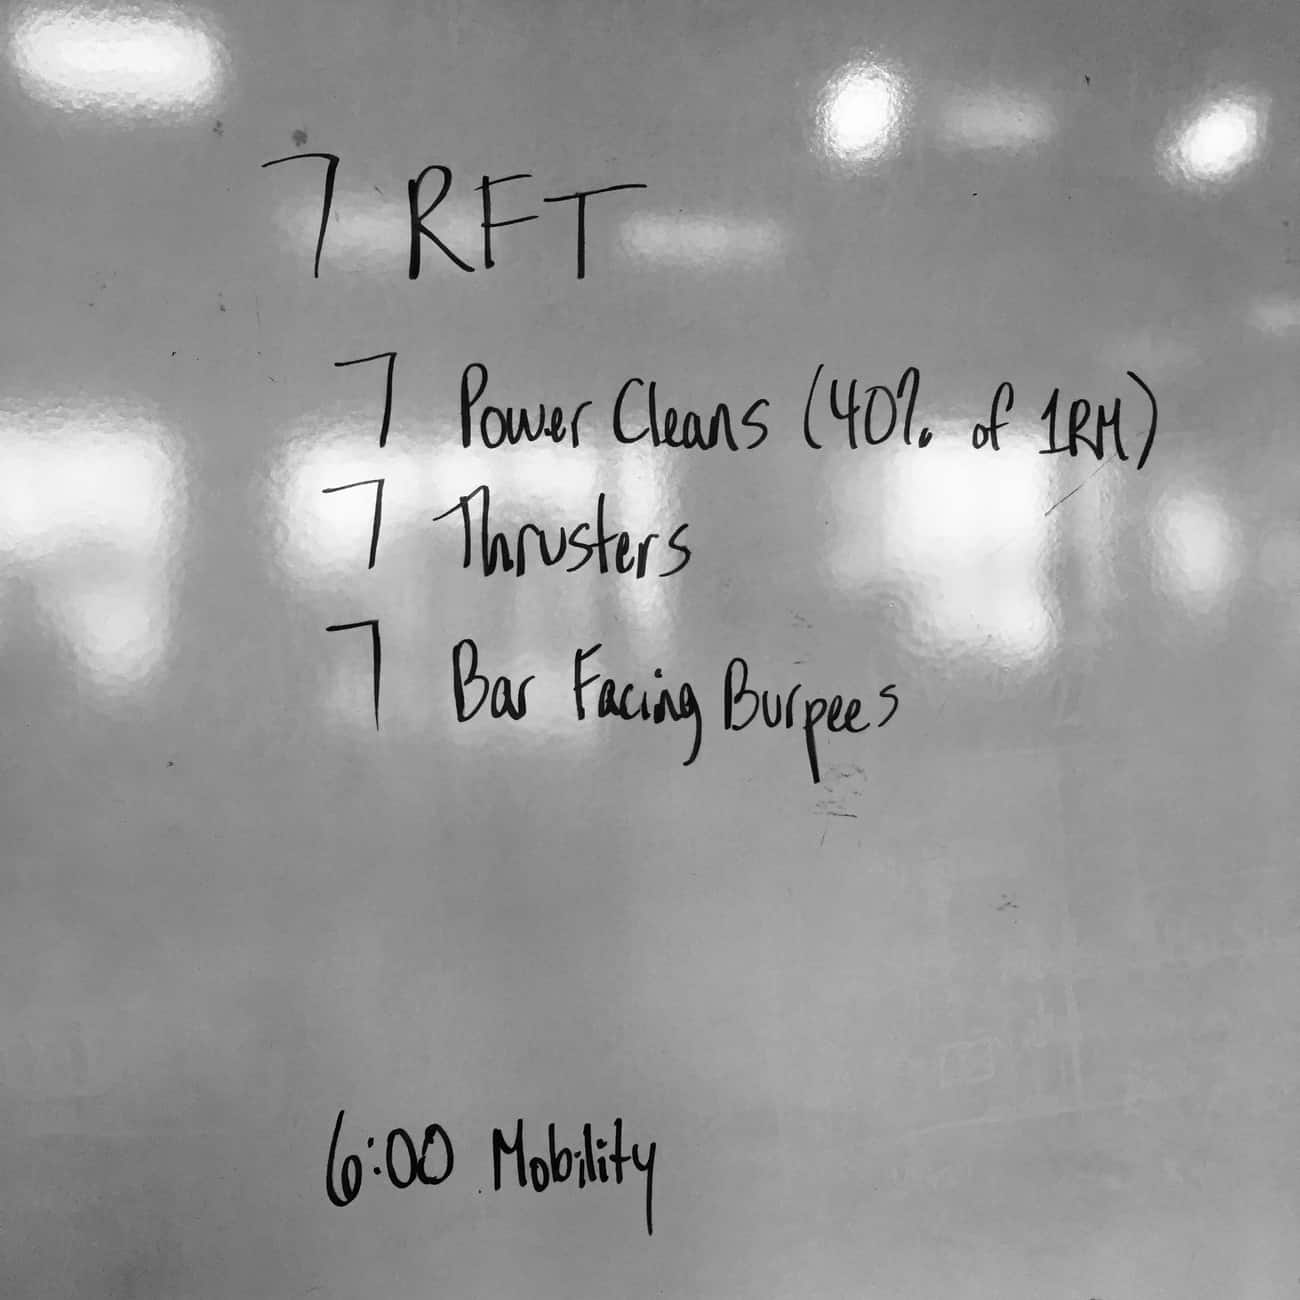 7 RFT
7 Power Cleans (40% of 1RM)
7 Thrusters
7 Bar Facing Burpees
6:00 Mobility